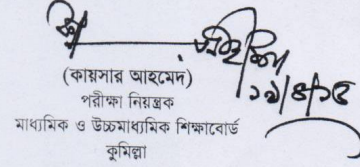 ১৯/৪/১৫
(কায়সার আহমেদ)
পরীক্ষা নিয়ন্ত্রক
মাধ্যমিক ও উচ্চমাধ্যমিক শিক্ষাবোর্ড
কুমিল্লা